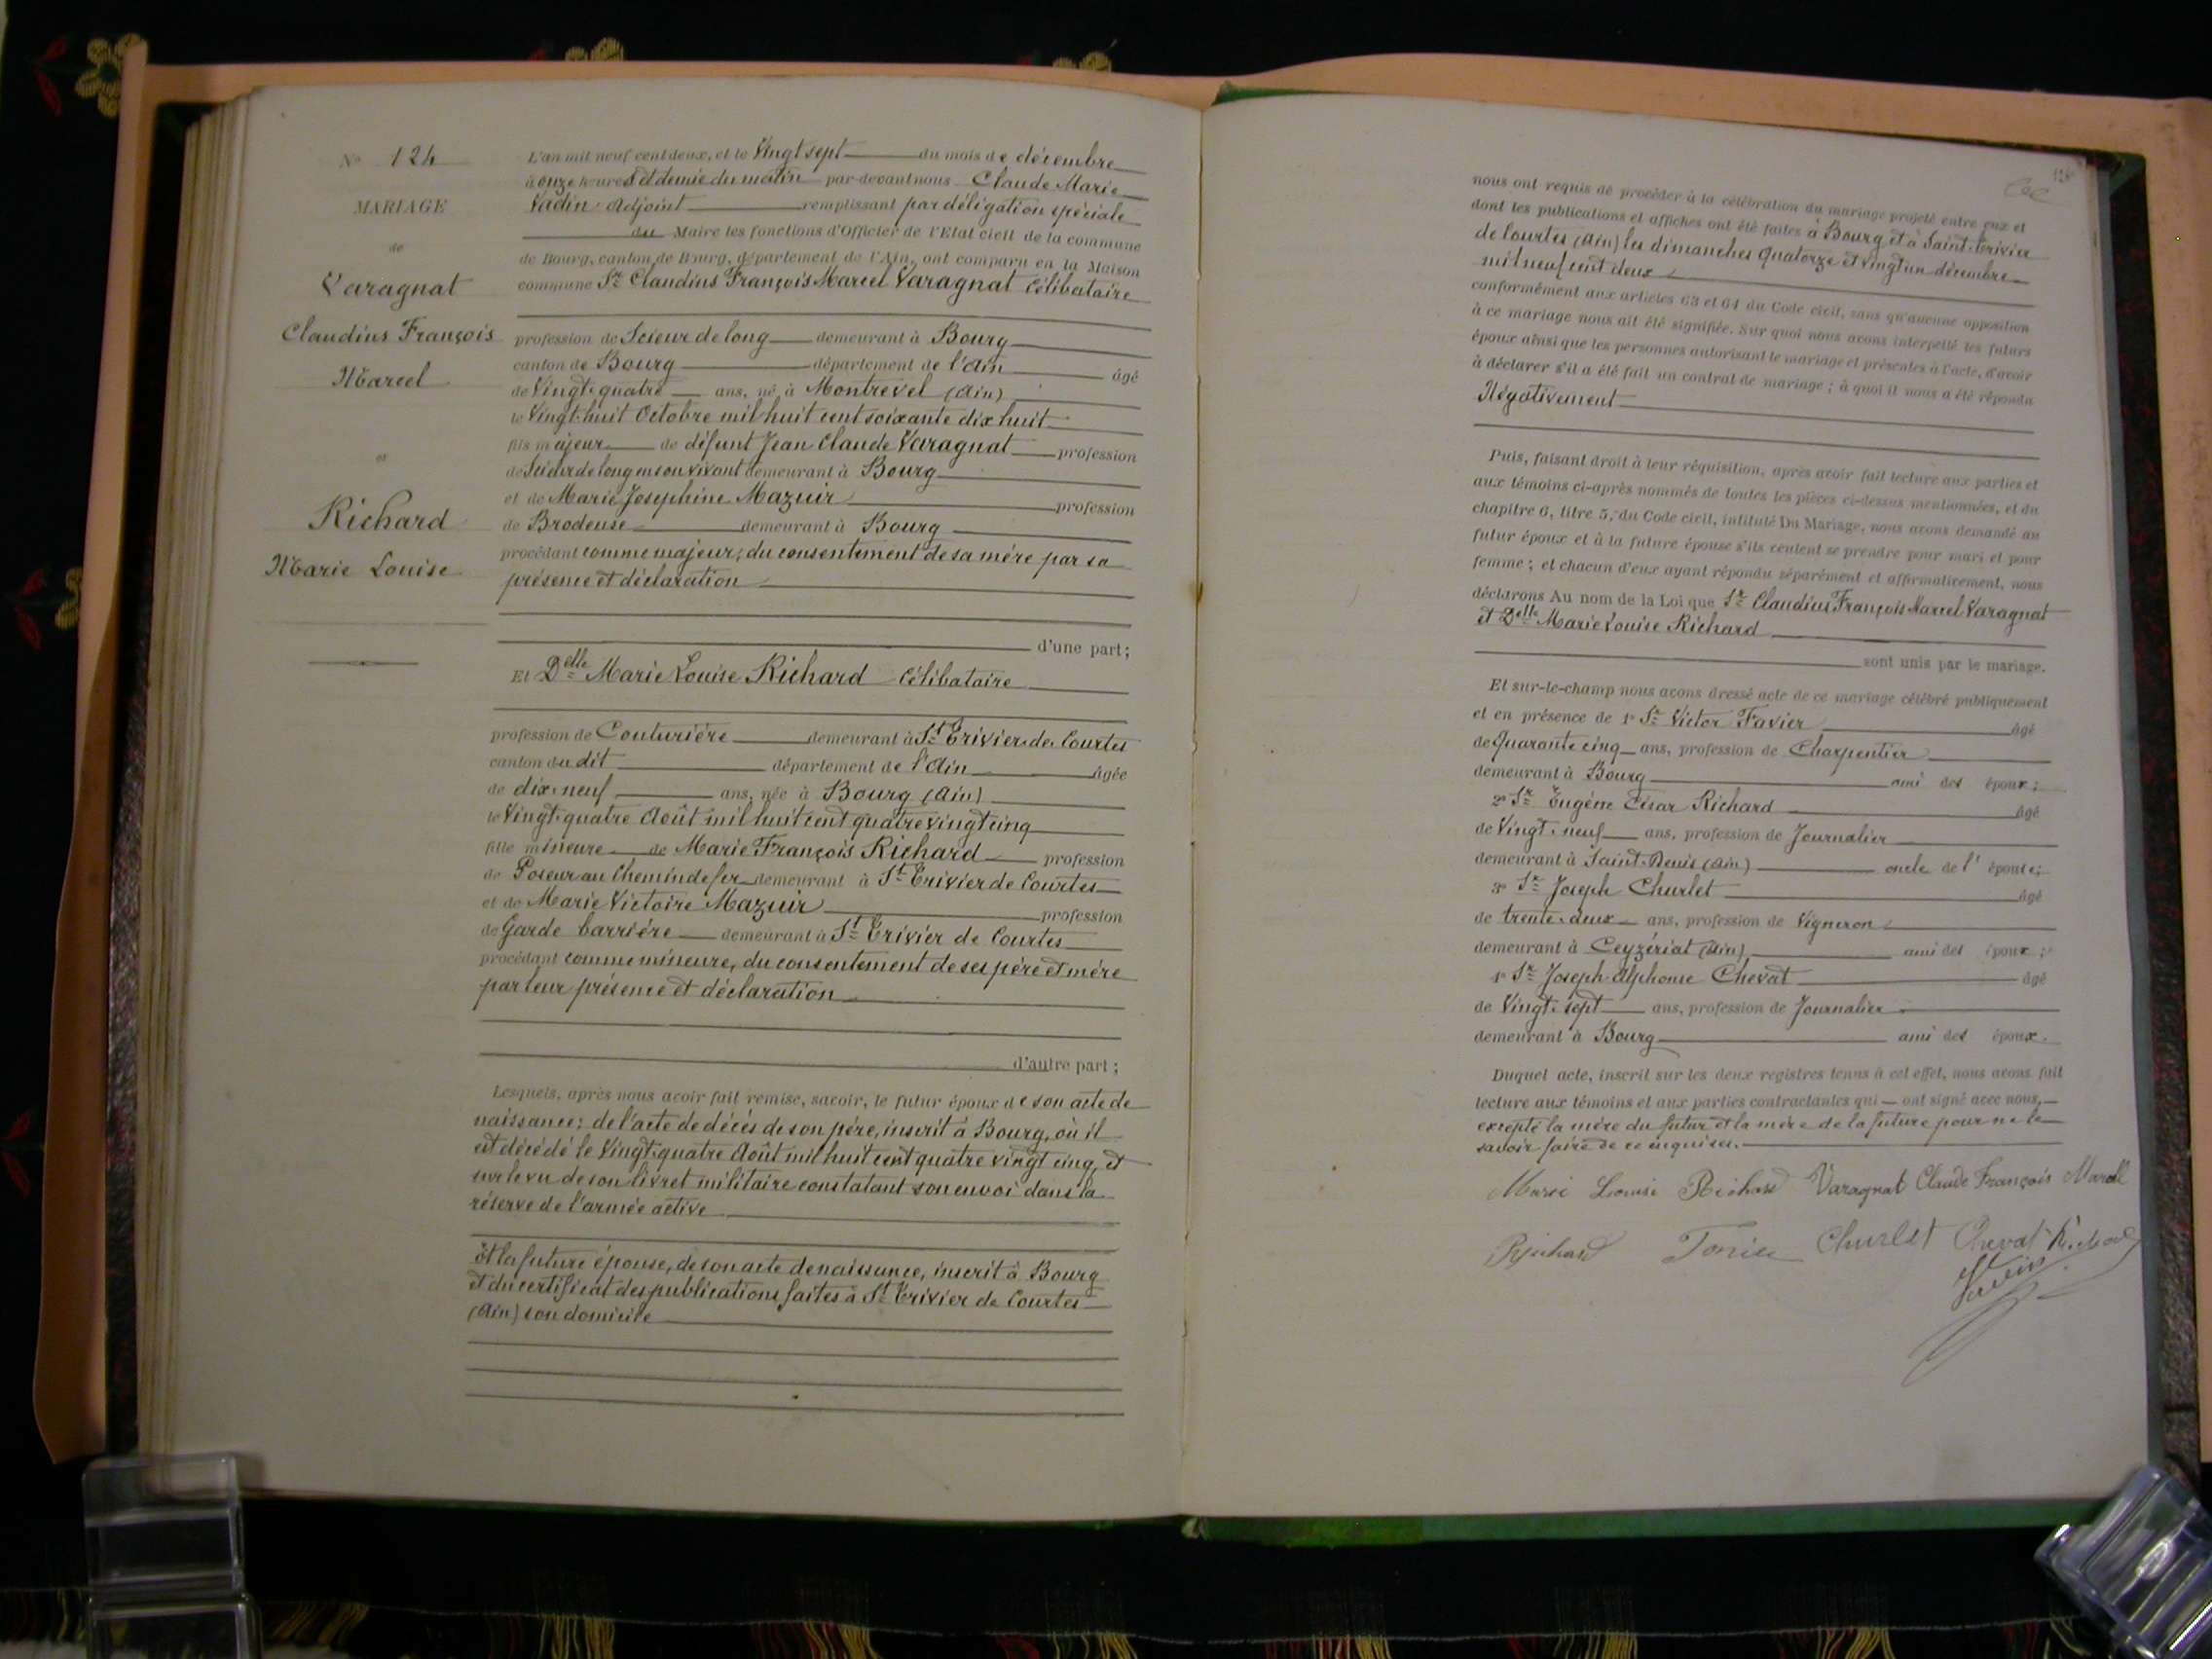 Nº 124
MARIAGE
de
Varagnat
Claudius François
Marcel
et
Richard
Marie Louise
L'an mil neuf cent deux, et le Vingt sept du mois de décembre
à onze heures et demie du matin par-devant nous Claude Marie
Vadin Adjoint remplissant par délégation spéciale
du Maire les fonctions d'Officier de l'Etat civil de la commune
de Bourg, canton de Bourg, département de l'Ain, ont comparu en la Maison
commune Sr Claudius François Marcel Varagnat Célibataire
profession de Scieur de long demeurant à Bourg
canton de Bourg département de l'Ain âgé
de Vingt-quatre ans, né à Montrevel (Ain)
le Vingt-huit Octobre mil huit cent soixante dix huit
fils majeur de défunt Jean Claude Varagnat profession
de Scieur de long en son vivant demeurant à Bourg
et de Marie Josephine Mazuir profession
de Brodeuse demeurant à Bourg
procédant comme majeur, du consentement de sa mère par sa
présence et déclaration
d'une part;
Et Delle Marie Louise Richard Célibataire
profession de Couturière demeurant à St Trivier de Courtes
canton du dit département de l'Ain âgée
de dix-neuf ans, née à Bourg (Ain)
le Vingt-quatre Août mil huit cent quatre vingt cinq
fille mineure de Marie François Richard profession
de Poseur au Chemin de fer demeurant à St Trivier de Courtes
et de Marie Victoire Mazuir profession
de Garde barrière demeurant à St Trivier de Courtes
procédant comme mineure, du consentement de ses père et mère
par leur présence et déclaration
d'autre part;
Lesquels, après nous avoir fait remise, savoir, le futur époux de son acte de
naissance; de l'acte de décès de son père, inscrit à Bourg, où il
est décédé le Vingt-quatre Août mil huit cent quatre vingt cinq, et
sur le vu de son livret militaire constatant son envoi dans la
réserve de l'armée active
Et la future épouse, de son acte de naissance, inscrit à Bourg
et du certificat des publications faites à St Trivier de Courtes
(Ain) son domicile
126
nous ont requis de procéder à la célébration du mariage projeté entre eux et
dont les publications et affiches ont été faites à Bourg et à Saint-Trivier
de Courtes (Ain) les dimanches Quatorze et vingt un décembre
mil neuf cent deux
conformément aux articles 63 et 64 du Code civil, sans qu'aucune opposition
à ce mariage nous ait été signifiée. Sur quoi nous avons interpellé les futurs
époux ainsi que les personnes autorisant le mariage et présentes à l'acte, d'avoir
à déclarer s'il a été fait un contrat de mariage; à quoi il nous a été répondu
Négativement
Puis, faisant droit à leur réquisition, après avoir fait lecture aux parties et
aux témoins ci-après nommés de toutes les pièces ci-dessus mentionnées, et du
chapitre 6, titre 5, du Code civil, intitulé Du Mariage, nous avons demandé au
futur époux et à la future épouse s'ils veulent se prendre pour mari et pour
femme; et chacun d'eux ayant répondu séparément et affirmativement, nous
déclarons Au nom de la Loi que Sr Claudius François Marcel Varagnat
et Delle Marie Louise Richard
sont unis par le mariage.
Et sur-le-champ nous avons dressé acte de ce mariage célébré publiquement
et en présence de 1º Sr Victor Favier âgé
de Quarante cinq ans, profession de Charpentier
demeurant à Bourg ami des époux;
2º Sr Eugène César Richard âgé
de Vingt-neuf ans, profession de Journalier
demeurant à Saint-Denis (Ain) oncle de l'épouse;
3º Sr Joseph Churlet âgé
de trente-deux ans, profession de Vigneron
demeurant à Ceyzériat (Ain) ami des époux;
4º Sr Joseph Alphonse Chevat âgé
de Vingt-sept ans, profession de Journalier
demeurant à Bourg ami des époux.
Duquel acte, inscrit sur les deux registres tenus à cet effet, nous avons fait
lecture aux témoins et aux parties contractantes qui ont signé avec nous,
excepté la mère du futur et la mère de la future pour ne le
savoir faire de ce enquises.
Marie Louise Richard Varagnat Claude François Marcell
Richard Churlet Chevat Richard